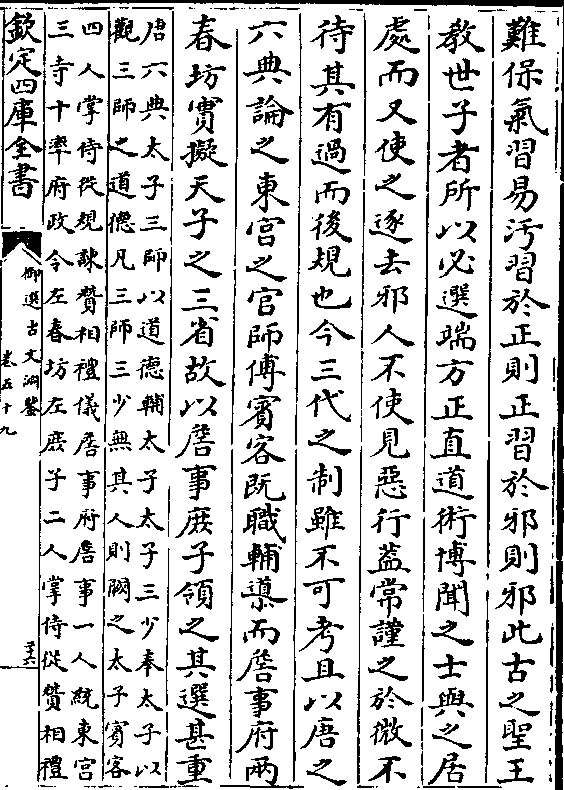 難保氣習易汚習於正則正習於邪則邪此古之聖王
教世子者所以必選端方正直道術博聞之士與之居
處而又使之逐去邪人不使見惡行蓋常謹之於微不
待其有過而後規也今三代之制雖不可考且以唐之
六典論之東宮之官師傅賓客既職輔導而詹事府兩
春坊實擬天子之三省故以詹事庶子領之其選甚重
唐六典太子三師以道德輔太子太子三少奉太子以
觀三師之道德凡三師三少無其人則闕之太子賓客
四人掌侍從規諫贊相禮儀詹事府詹事一人統東宮
三寺十率府政令左春坊左庶子二人掌侍從贊相禮
欽定四庫全書
御選古文淵鑒
卷五十九
三六